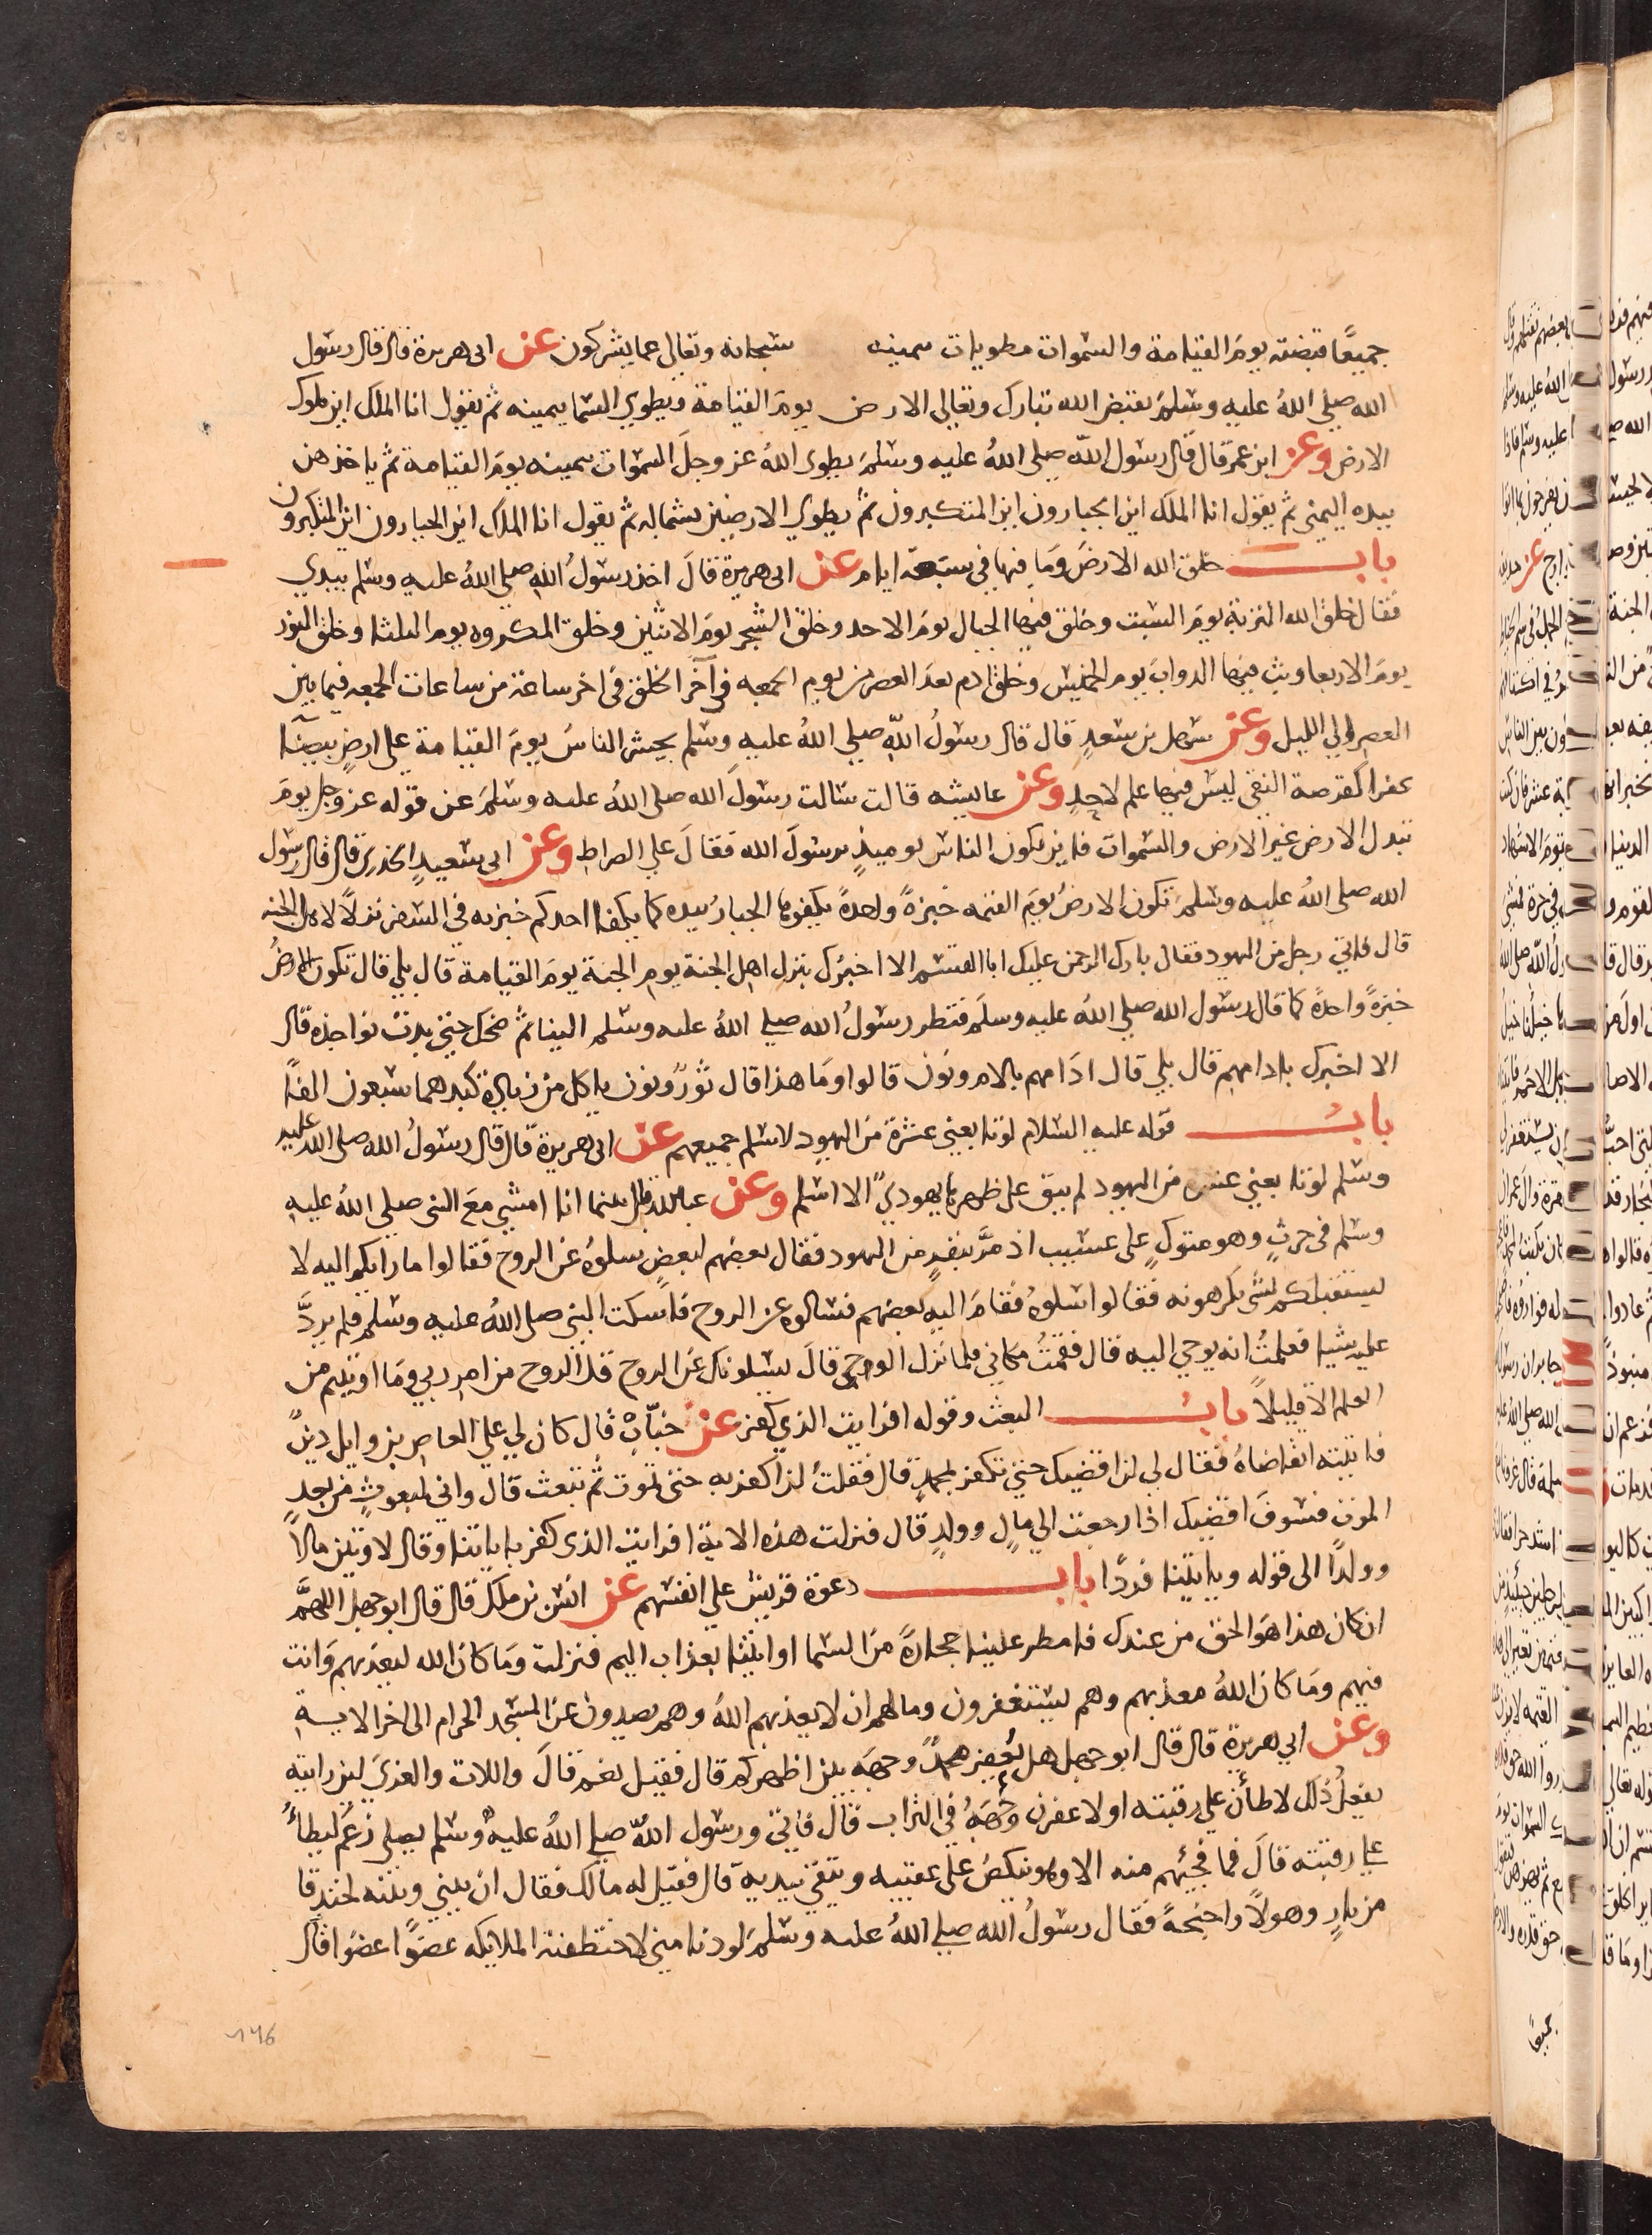 جميعًا قبضته يوم القيامة والسموات مطويات بيمينه سبحانه وتعالى عما يشركون عن ابى هريرة قال قال رسول
الله صلى الله عليه وسلم يقبض الله تبارك وتعالى الارض يوم القيامة ويطوي السما بيمينه ثم يقول انا الملك اين ملوك
الارض وعن ابن عمر قال قال رسول الله صلى الله عليه وسلم يطوى الله عز وجل السموات بيمينه يوم القيامة ثم ياخذهن
بيده اليمنى ثم يقول انا الملك اين الجبارون اين المتكبرون ثم يطوي الارضين بشماله ثم يقول انا الملك اين الجبارون اين المتكبرون
باب خلق الله الارض وما فيها في سبعة ايام عن ابى هريرة قال اخذ رسول الله صلى الله عليه وسلم بيدي
فقال خلق الله التربة يوم السبت وخلق فيها الجبال يوم الاحد وخلق الشجر يوم الاثنين وخلق المكروه يوم الثلثا وخلق النور
يوم الاربعا وبث فيها الدواب يوم الخميس وخلق ادم بعد العصر من يوم الجمعه في آخر الخلق في اخر ساعة من ساعات الجمعه فيما بين
العصر الي الليل وعن سهل بن سعدٍ قال قال رسول الله صلي الله عليه وسلم يحشر الناس يوم القيامة على ارضٍ بيضآ
عفرا كقرصة النقي ليس فيها علم لاحدٍ وعن عايشه قالت سالت رسول الله صلى الله عليه وسلم عن قوله عز وجل يوم
تبدل الارض غير الارض والسموات فاين يكون الناس يوميذٍ يرسول الله فقال علي الصراط وعن ابى سعيدٍ الخدري قال قال رسول
الله صلى الله عليه وسلم تكون الارض يوم القيمه خبزةً واحدةً يكفوها الجبار بيده كما يكفا احدكم خبزته في السفر نزلًا لاهل الجنه
قال فاتي رجل من اليهود فقال بارك الرحمن عليك ابا القسم الا اخبرك بنزل اهل الجنة يوم الجنة يوم القيامة قال بلي قال تكون الارض
خبزةً واحدةً كما قال رسول الله صلي الله عليه وسلم فنظر رسول الله صلي الله عليه وسلم الينا ثم ضحك حتي بدت نواجذه قال
الا اخبرك بادامهم قال بلي قال ادامهم بالام ونون قالوا وما هذا قال ثورٌ ونون ياكل من زيادة كبدهما سبعون الفًا
باب قوله عليه السلام لو تابعني عشرة من اليهود لاسلم جميعهم عن ابى هريرة قال قال رسول الله صلى الله عليه
وسلم لو تابعني عشرة من اليهود لم يبق على ظهرها يهوديّ الا اسلم وعن عبد الله قال بينما انا امشي مع النبى صلي الله عليه
وسلم فى حرثٍ وهو متوكٍ على عسيب اذ مرّ بنفرٍ من اليهود فقال بعضهم لبعض سلوه عن الروح فقالوا ما رابكم اليه لا
يستقبلكم بشى تكرهونه فقالوا سلوه فقام اليه بعضهم فسالوه عن الروح فاسكت النبى صلى الله عليه وسلم فلم يردّ
عليه شيا فعلمت انه يوحي اليه قال فقمت مكاني فلما نزل الوحي قال يسلونك عن الروح قل الروح من امر ربي وما اوتيتم من
العلم الا قليلًا باب البعث وقوله افرايت الذي كفر عن خبّابٍ قال كان لي علي العاص بن وايل دينٌ
فاتيته اتقاضاه فقال لي لن اقضيك حتي تكفر بمحمدٍ قال فقلت لن اكفر به حتى تموت ثم تبعث قال واني لمبعوث من بعد
الموت فسوف اقضيك اذا رجعت الي مالٍ وولدٍ قال فنزلت هذه الاية افرايت الذى كفر باياتنا وقال لاوتين مالًا
وولدًا الى قوله وياتينا فردًا باب دعوة قريش علي انفسهم عن انس بن ملك قال قال ابو جهل اللهم
ان كان هذا هو الحق من عندك فامطر علينا حجارةً من السما او ائتنا بعذاب اليم فنزلت وما كان الله ليعذبهم وانت
فيهم وما كان الله معذبهم وهم يستغفرون وما لهم ان لا يعذبهم الله وهم يصدون عن المسجد الحرام الى اخر الاية
وعن ابي هريرة قال قال ابو جهل هل يعفر محمدٌ وجهه بين اظهركم قال فقيل نعم قال واللات والعزي لين رايته
يفعل ذلك لاطأن علي رقبته او لاعفرن وجهه في التراب قال فاتي ورسول الله صلي الله عليه وسلم يصلى زعم ليطأ
علي رقبته قال فما فجئهم منه الا وهو ينكص علي عقبيه ويتقي بيديه قال فقيل له مالك فقال ان بيني وبينه لخندقا
من نارٍ وهولًا واجنحةً فقال رسول الله صلي الله عليه وسلم لو دنا مني لاختطفته الملايكه عضوًا عضوًا قال
جميعًا